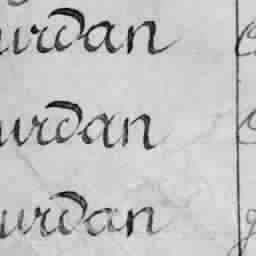 urdan
urdan
urdan